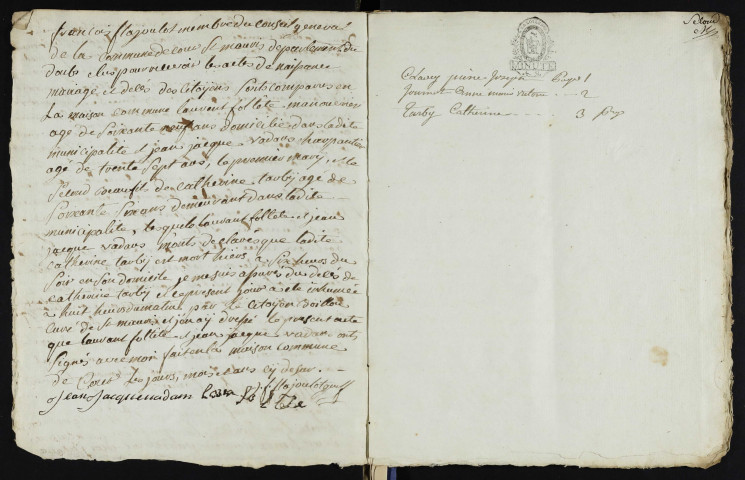 françois Hajoulet membre du conseil general
de la Commune de cour St mauris departement du
doubs elus pour recevoir les actes de naissance
mariage et deces des Citoyens sont comparus en
la maison commune laurant follete manouvrier
agé de soixante ans domicilié dans ladite
municipalité et jean jacque vadans charpantier
agé de trente sept ans, le premier mary et le
second beaufil de catherine tarby age de
soixante ans demeurant dans ladite
municipalité, lesquels laurant follete et jean
jacque vadans m'ont declarés que ladite
catherine tarby est mort hiers a six heures du
soir en son domicile je me suis assuré du deces de
catherine tarby et ce present jour a été inhumée
a huit heures du matin par le citoyen Boillon
curé de St mauris et j'en ay dressé le present acte
que laurant follete et jean jacque vadans ont
signés avec moi fait en la maison commune
de Cour les jours, mois et ans cy dessus
Jean Jacque vadam
Clavey pierre Joseph page 1
Journot anne marie victoire 2
Tarby Catherine 3